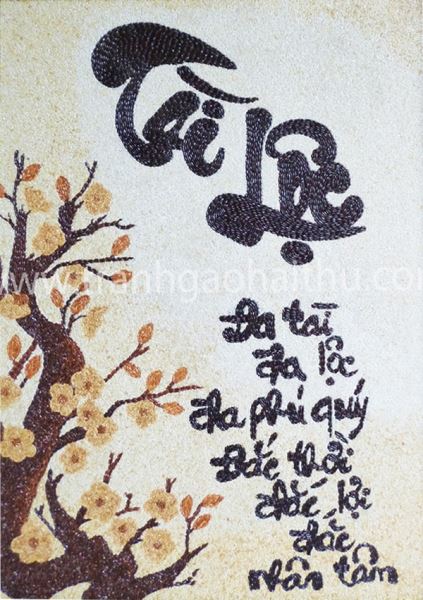 Tài
Lộc
www.tranhgaohaithu.com
Đa tài
đa lộc
đa phú quý
Đắc thời
đắc lợi
đắc
nhân tâm